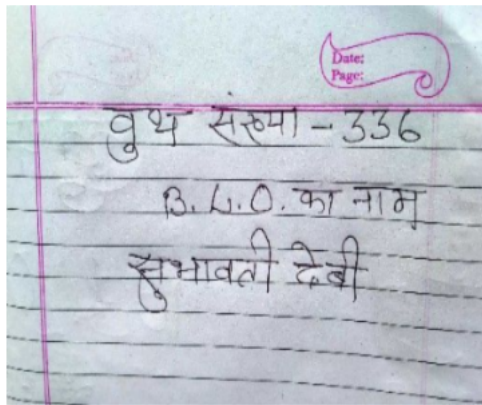 Date:
Page:
वुथ संख्या - 336
B.L.O. का नाम
सुभावती देवी